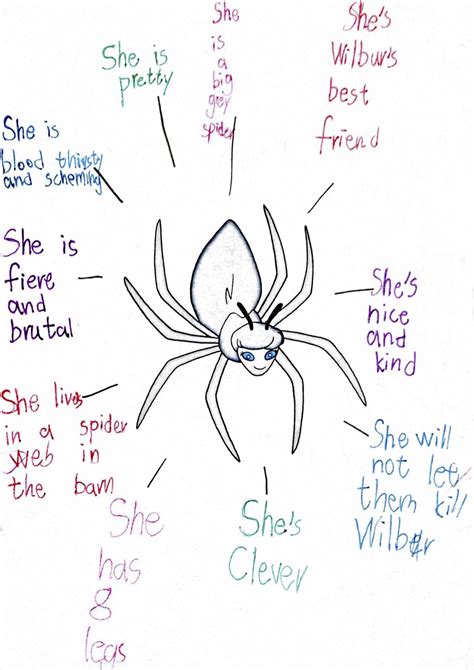 She is
pretty
She
is
a
big
grey
spider
She's
Wilbur's
best
friend
She is
blood thirsty
and scheming
She is
fiere
and
brutal
She's
nice
and
kind
She lives
in a spider
web in
the barn
She will
not let
them kill
Wilbur
She
has
8
legs
She's
Clever